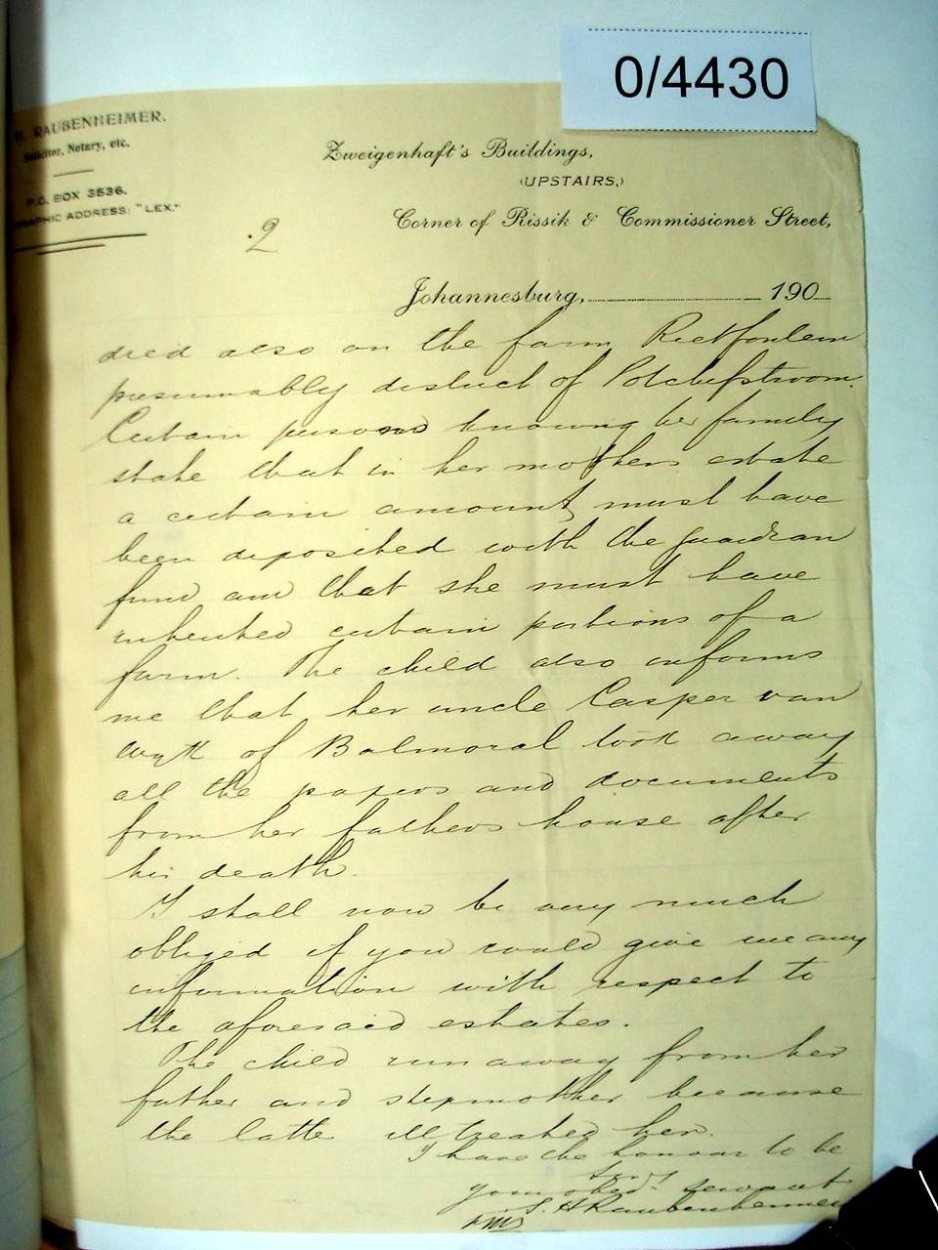 0/4430
H. RAUBENHEIMER.
Solicitor, Notary, etc.
P.O. BOX 3536.
GRAPHIC ADDRESS: "LEX."
Zweigenhaft's Buildings,
(UPSTAIRS,)
Corner of Rissik & Commissioner Street,
2
Johannesburg, 190
died also on the farm Rietfontein
presumably district of Potchefstroom.
Certain persons knowing her family
state that in her mothers estate
a certain amount must have
been deposited with the guardian
fund and that she must have
inherited certain portions of a
farm. The child also informs
me that her uncle Casper van
Wyk of Balmoral took away
all the papers and documents
from her fathers house after
his death.
I shall now be very much
obliged if you could give me any
information with respect to
the aforesaid estates.
The child run away from her
father and stepmother because
the latte illtreated her.
I have the honour to be
Sir
your obed. servant
S. H Raubenheimer